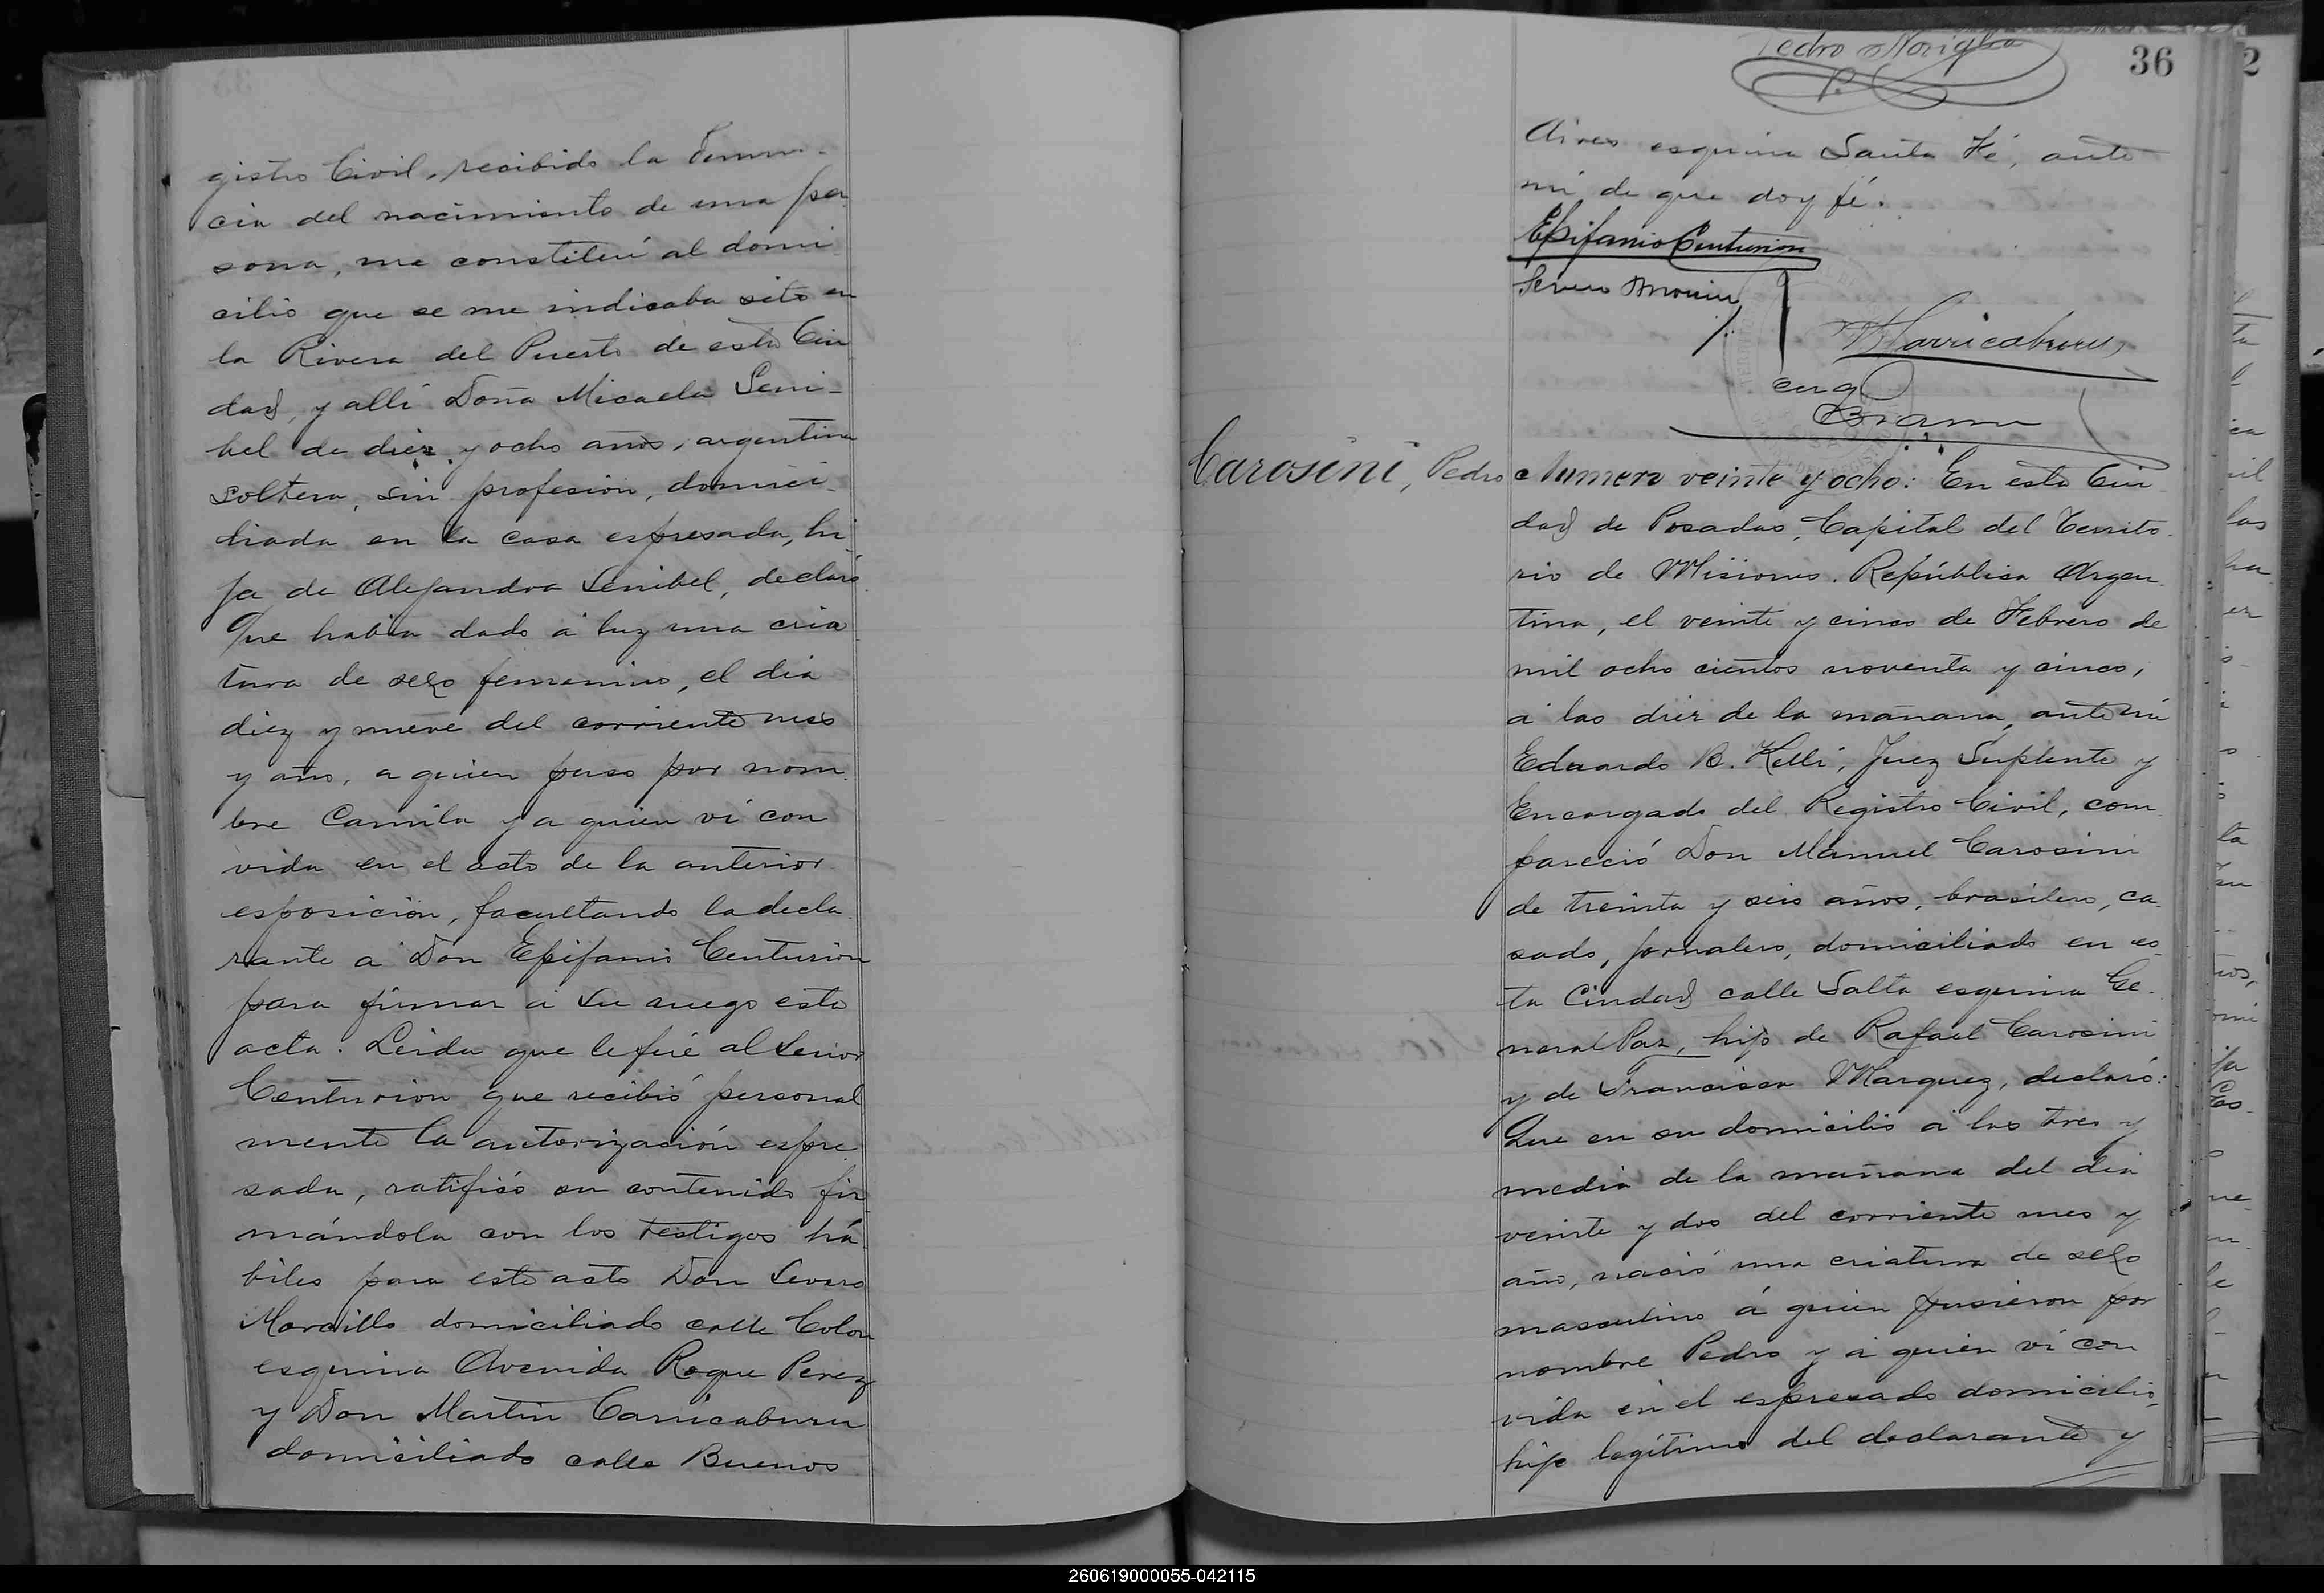 gistro Civil, recibido la denun-
cia del nacimiento de una per
sona, me constituí al domi
cilio que se me indicaba sito en
la Rivera del Puerto de esta Ciu
dad, y allí Doña Micaela Seni-
bel de diez y ocho años, argentina
soltera, sin profesion, domici-
liada en la casa espresada, hi
ja de Alejandra Senibel, declaró
Que habia dado á luz una cria
tura de sexo femenino, el dia
diez y nueve del corriente mes
y año, a quien puso por nom
bre Camila y a quien vi con
vida en el acto de la anterior
esposicion, facultando la decla
rante a Don Epifanio Centurion
para firmar a su ruego esta
acta. Leida que le fué al Señor
Centurion que recibió personal
mente la autorización espre
sada, ratificó su contenido fir
mándola con los testigos há
biles para este acto Don Severo
domiciliado calle Colon
esquina Avenida Roque Perez
y Don Martin Carricaburu
domiciliado calle Buenos
Pedro Noriglia
36
Aires esquina Santa Fé, ante
mi de que doy fé.
Epifanio Centurion
Severo
M Carricaburu
Carosini, Pedro
Numero veinte y ocho: En esta Ciu
dad de Posadas, Capital del Territo
rio de Misiones, República Argen
tina, el veinte y cinco de Febrero de
mil ocho cientos noventa y cinco,
a las diez de la mañana, ante mi
Eduardo B. Kelli, Juez Suplente y
Encargado del Registro Civil, com
pareció Don Manuel Carosini
de treinta y seis años, brasilero, ca
sado, jornalero, domiciliado en es
ta Ciudad calle Salta esquina Ge
neral Paz, hijo de Rafael Carosini
y de Francisca Marquez, declaró:
Que en su domicilio á las tres y
media de la mañana del dia
veinte y dos del corriente mes y
año, nació una criatura de sexo
masculino á quien pusieron por
nombre Pedro y á quien vi con
vida en el espresado domicilio,
hijo legítimo del declarante y
260619000055-042115